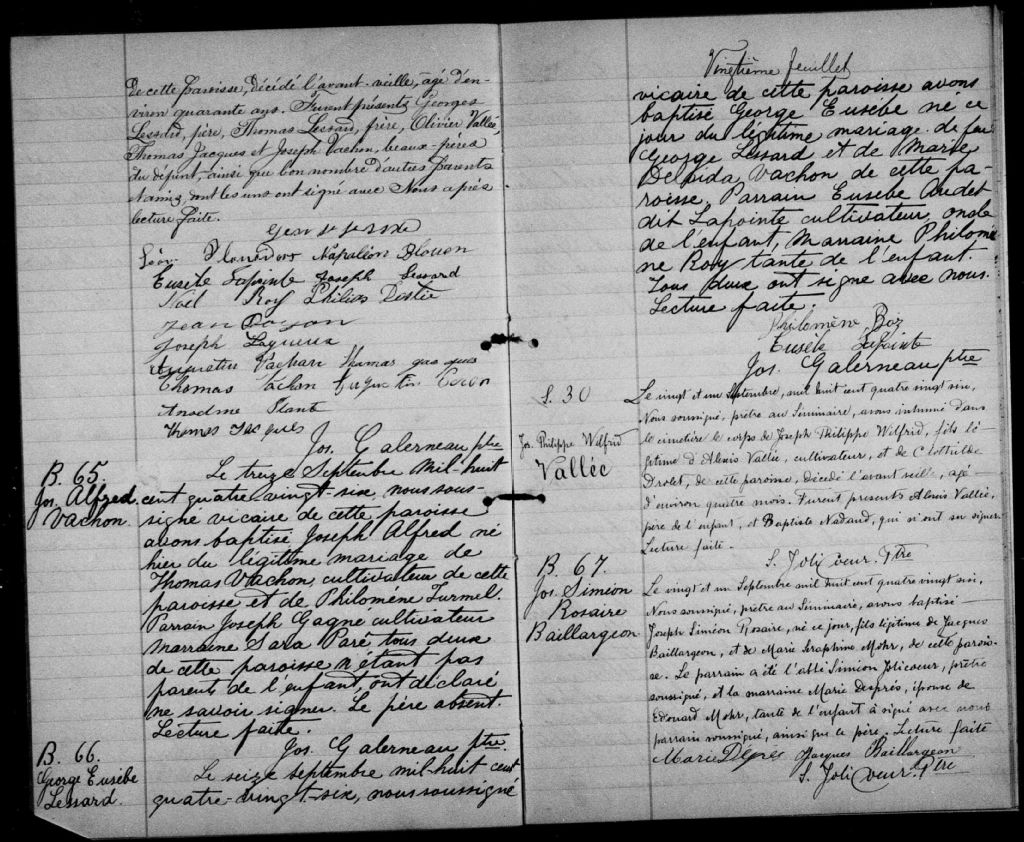 De cette paroisse, décédé l'avant-veille, âgé d'en-
viron quarante ans. Furent présents Georges
Lessard, père, Thomas Lessard, frère, Olivier Vallée,
Thomas Jacques et Joseph Vachon, beaux-frères
du défunt, ainsi que bon nombre d'autres parents
et amis, dont les uns ont signé avec Nous après
lecture faite.
Napoléon Blouen
Eusèbe Lapointe Joseph Lessard
Noël Roy Philias
Jean
Joseph Lagueux
Augustin Vachon Thomas
Thomas
Plant
Thomas Jacques
Jos. Galerneau ptre
B. 65.
Jos. Alfred
Vachon.
Le treize Septembre mil-huit
cent quatre-vingt-six, nous sous-
signé vicaire de cette paroisse
avons baptisé Joseph Alfred né
hier du légitime mariage de
Thomas Vachon cultivateur de cette
paroisse et de Philomène Turmel.
Parrain Joseph Gagné cultivateur
marraine Sara Paré tous deux
de cette paroisse n'étant pas
parents de l'enfant, ont déclaré
ne savoir signer. Le père absent.
Lecture faite.
Jos. Galerneau ptre.
B. 66.
George Eusèbe
Lessard.
Le seize septembre mil-huit cent
quatre-vingt-six, nous soussigné
Vingtième feuillet
vicaire de cette paroisse avons
baptisé George Eusèbe né ce
jour du légitime mariage de feu
George Lessard et de Marie
Delvida Vachon de cette pa-
roisse, Parrain Eusèbe Audet
dit Lapointe cultivateur, oncle
de l'enfant, Marraine Philomè
ne Roy tante de l'enfant.
Tous deux ont signé avec nous.
Lecture faite.
Philomène Roy
Eusèbe Lapointe
Jos. Galerneau ptre
S. 30
Jos. Philippe Wilfrid
Vallée
Le vingt et un Septembre, mil huit cent quatre vingt six,
Nous soussigné, prêtre au Séminaire, avons inhumé dans
le cimetière le corps de Joseph Philippe Wilfrid, fils lé
gitime d'Alexis Vallée, cultivateur, et de Clothilde
Drolet, de cette paroisse, décédé l'avant veille, âgé
d'environ quatre mois. Furent présents Alexis Vallée,
père de l'enfant, et Baptiste Nadaud, qui n'ont su signer.
Lecture faite.
S. Jolicoeur. Ptre
B. 67.
Jos. Siméon
Rosaire
Baillargeon
Le vingt et un Septembre mil huit cent quatre vingt six,
Nous soussigné, prêtre au Séminaire, avons baptisé
Joseph Siméon Rosaire, né ce jour, fils légitime de Jacques
Baillargeon, et de Marie Séraphine Mohr, de cette parois-
se. Le parrain a été l'abbé Siméon Jolicoeur, prêtre
soussigné, et la marraine Marie Després, épouse de
Edouard Mohr, tante de l'enfant a signé avec nous
parrain soussigné, ainsi que ce père. Lecture faite
Marie Després Jacques Baillargeon
S. Jolicoeur. Ptre